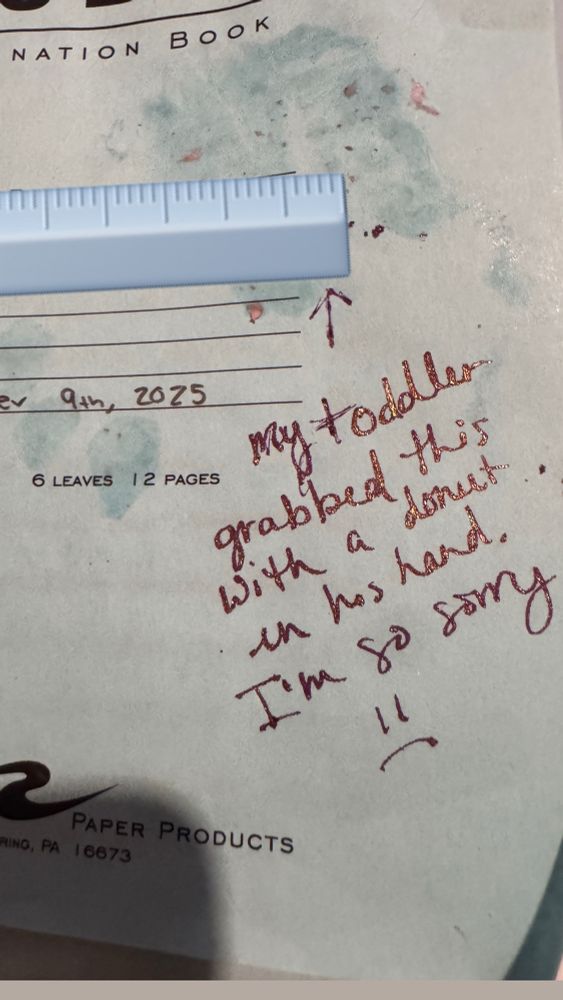 NATION BOOK
er 9th, 2025
6 LEAVES 12 PAGES
my toddler
grabbed this
with a donut
in his hand.
I'm so sorry
PAPER PRODUCTS
RING, PA 16673